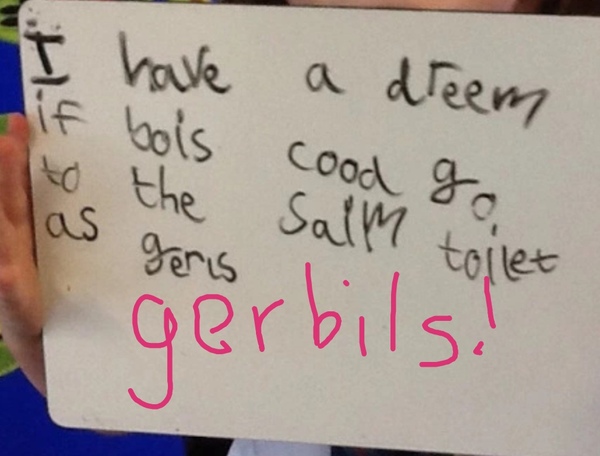 I have a dreem
if bois cood go
to the Salm toilet
as gerls
gerbils!